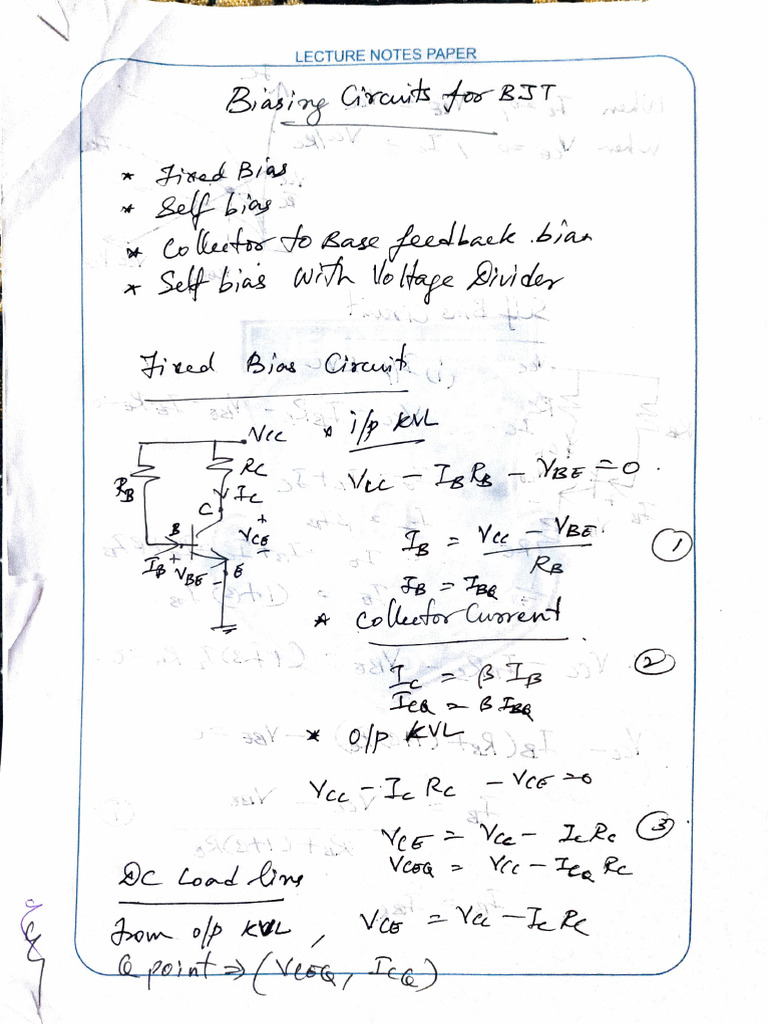 LECTURE NOTES PAPER
Biasing Circuits for BJT
* Fixed Bias
* Self bias
* Collector to Base feedback bias
* Self bias with Voltage Divider
Fixed Bias Circuit
* i/p KVL
VCC
RC
RB
IC
C
B
VCE
+
-
IB
+
VBE
-
E
VCC - IB RB - VBE = 0.
IB = VCC - VBE / RB ①
IB = IBQ
* Collector Current
IC = β IB ②
ICQ = β IBQ
* O/p KVL
VCC - IC RC - VCE = 0
VCE = VCC - IC RC ③
VCEQ = VCC - ICQ RC
DC Load line
from o/p KVL, VCE = VCC - IC RC
Q point ⇒ (VCEQ, ICQ)